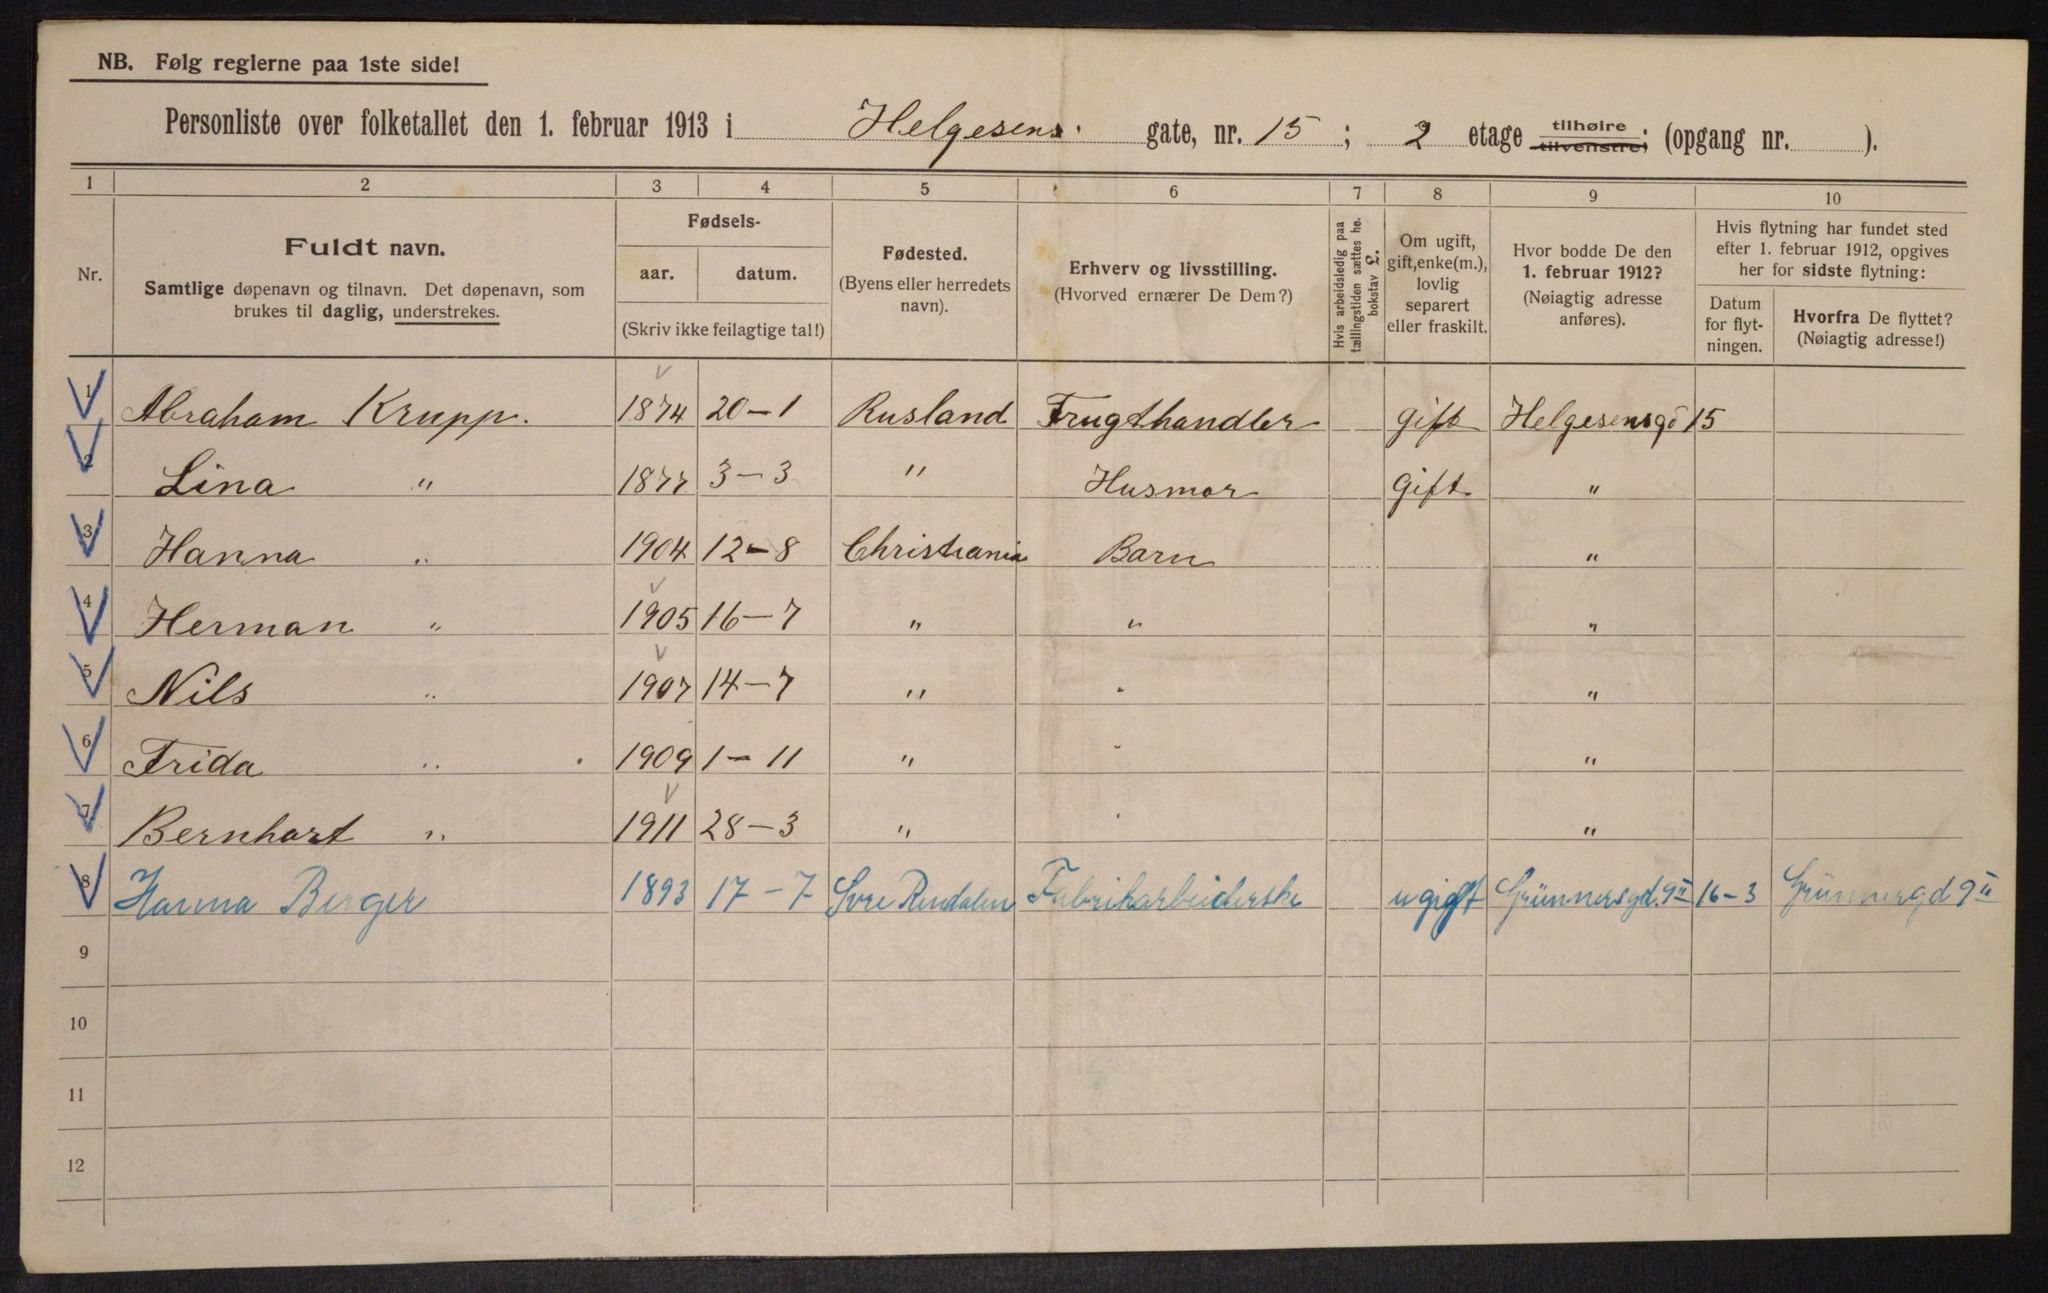 NB. Følg reglerne paa 1ste side!
Personliste over folketallet den 1. februar 1913 i Helgesens gate, nr. 15; 2 etage tilhøire tilvenstre; (opgang nr. ).
1 2 3 4 5 6 7 8 9 10
Nr.
Fuldt navn.
Samtlige døpenavn og tilnavn. Det døpenavn, som
brukes til daglig, understrekes.
Fødsels-
aar. datum.
(Skriv ikke feilagtige tal!)
Fødested.
(Byens eller herredets
navn).
Erhverv og livsstilling.
(Hvorved ernærer De Dem?)
Hvis arbeidsledig paa
tællingstiden sættes he.
bokstav L.
Om ugift,
gift, enke(m.),
lovlig
separert
eller fraskilt.
Hvor bodde De den
1. februar 1912?
(Nøiagtig adresse
anføres).
Hvis flytning har fundet sted
efter 1. februar 1912, opgives
her for sidste flytning:
Datum
for flyt-
ningen.
Hvorfra De flyttet?
(Nøiagtig adresse!)
1 Abraham Krupp. 1874 20-1 Rusland Frugthandler gift Helgesensgd 15
2 Lina " 1877 3-3 " Husmor Gift "
3 Hanna " 1904 12-8 Christiania Barn "
4 Herman " 1905 16-7 " " "
5 Nils " 1907 14-7 " " "
6 Frida " 1909 1-11 " " "
7 Bernhart " 1911 28-3 " " "
8 Hanna Berger 1893 17-7 Øvre Rendalen Fabrikarbeiderske ugift Grünnersgd. 9 II 16-3 Grünnergd 9 II
9
10
11
12